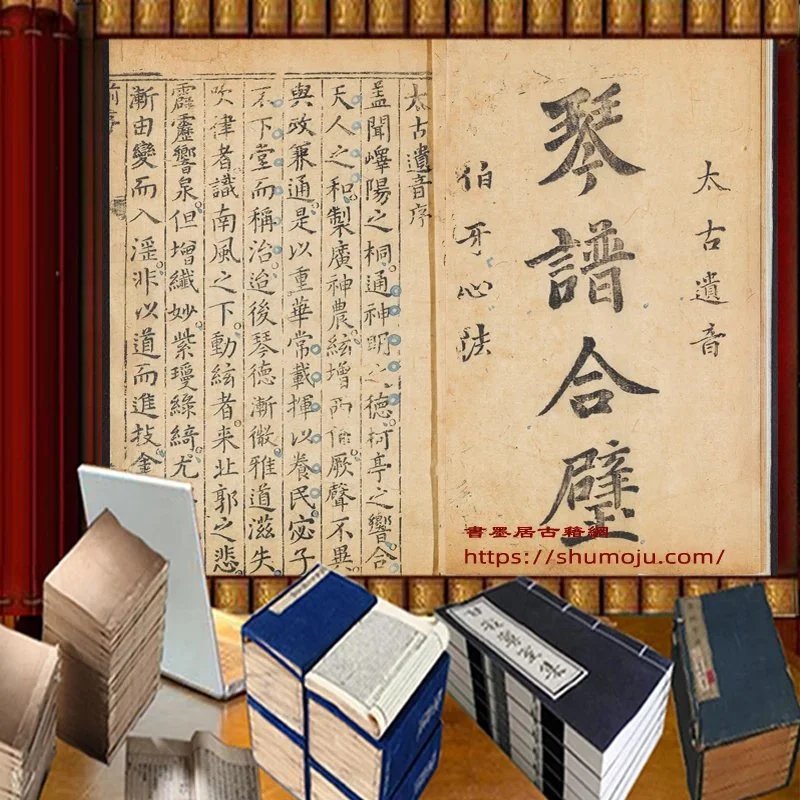 太古遺音
琴譜合璧
伯牙心法
太古遺音序
蓋聞嶧陽之桐通神明之德柯亭之響合
天人之和製廣神農絃增西伯厥聲不異
與政兼通是以重華常載揮以養民宓子
不下堂而稱治迨後琴德漸微雅道滋失
吹律者識南風之下動絃者来北郭之悲
霹靂響泉但增纖妙紫瓊綠綺尤
漸由變而入淫非以道而進技金
前序
書墨居古籍網
https://shumoju.com/